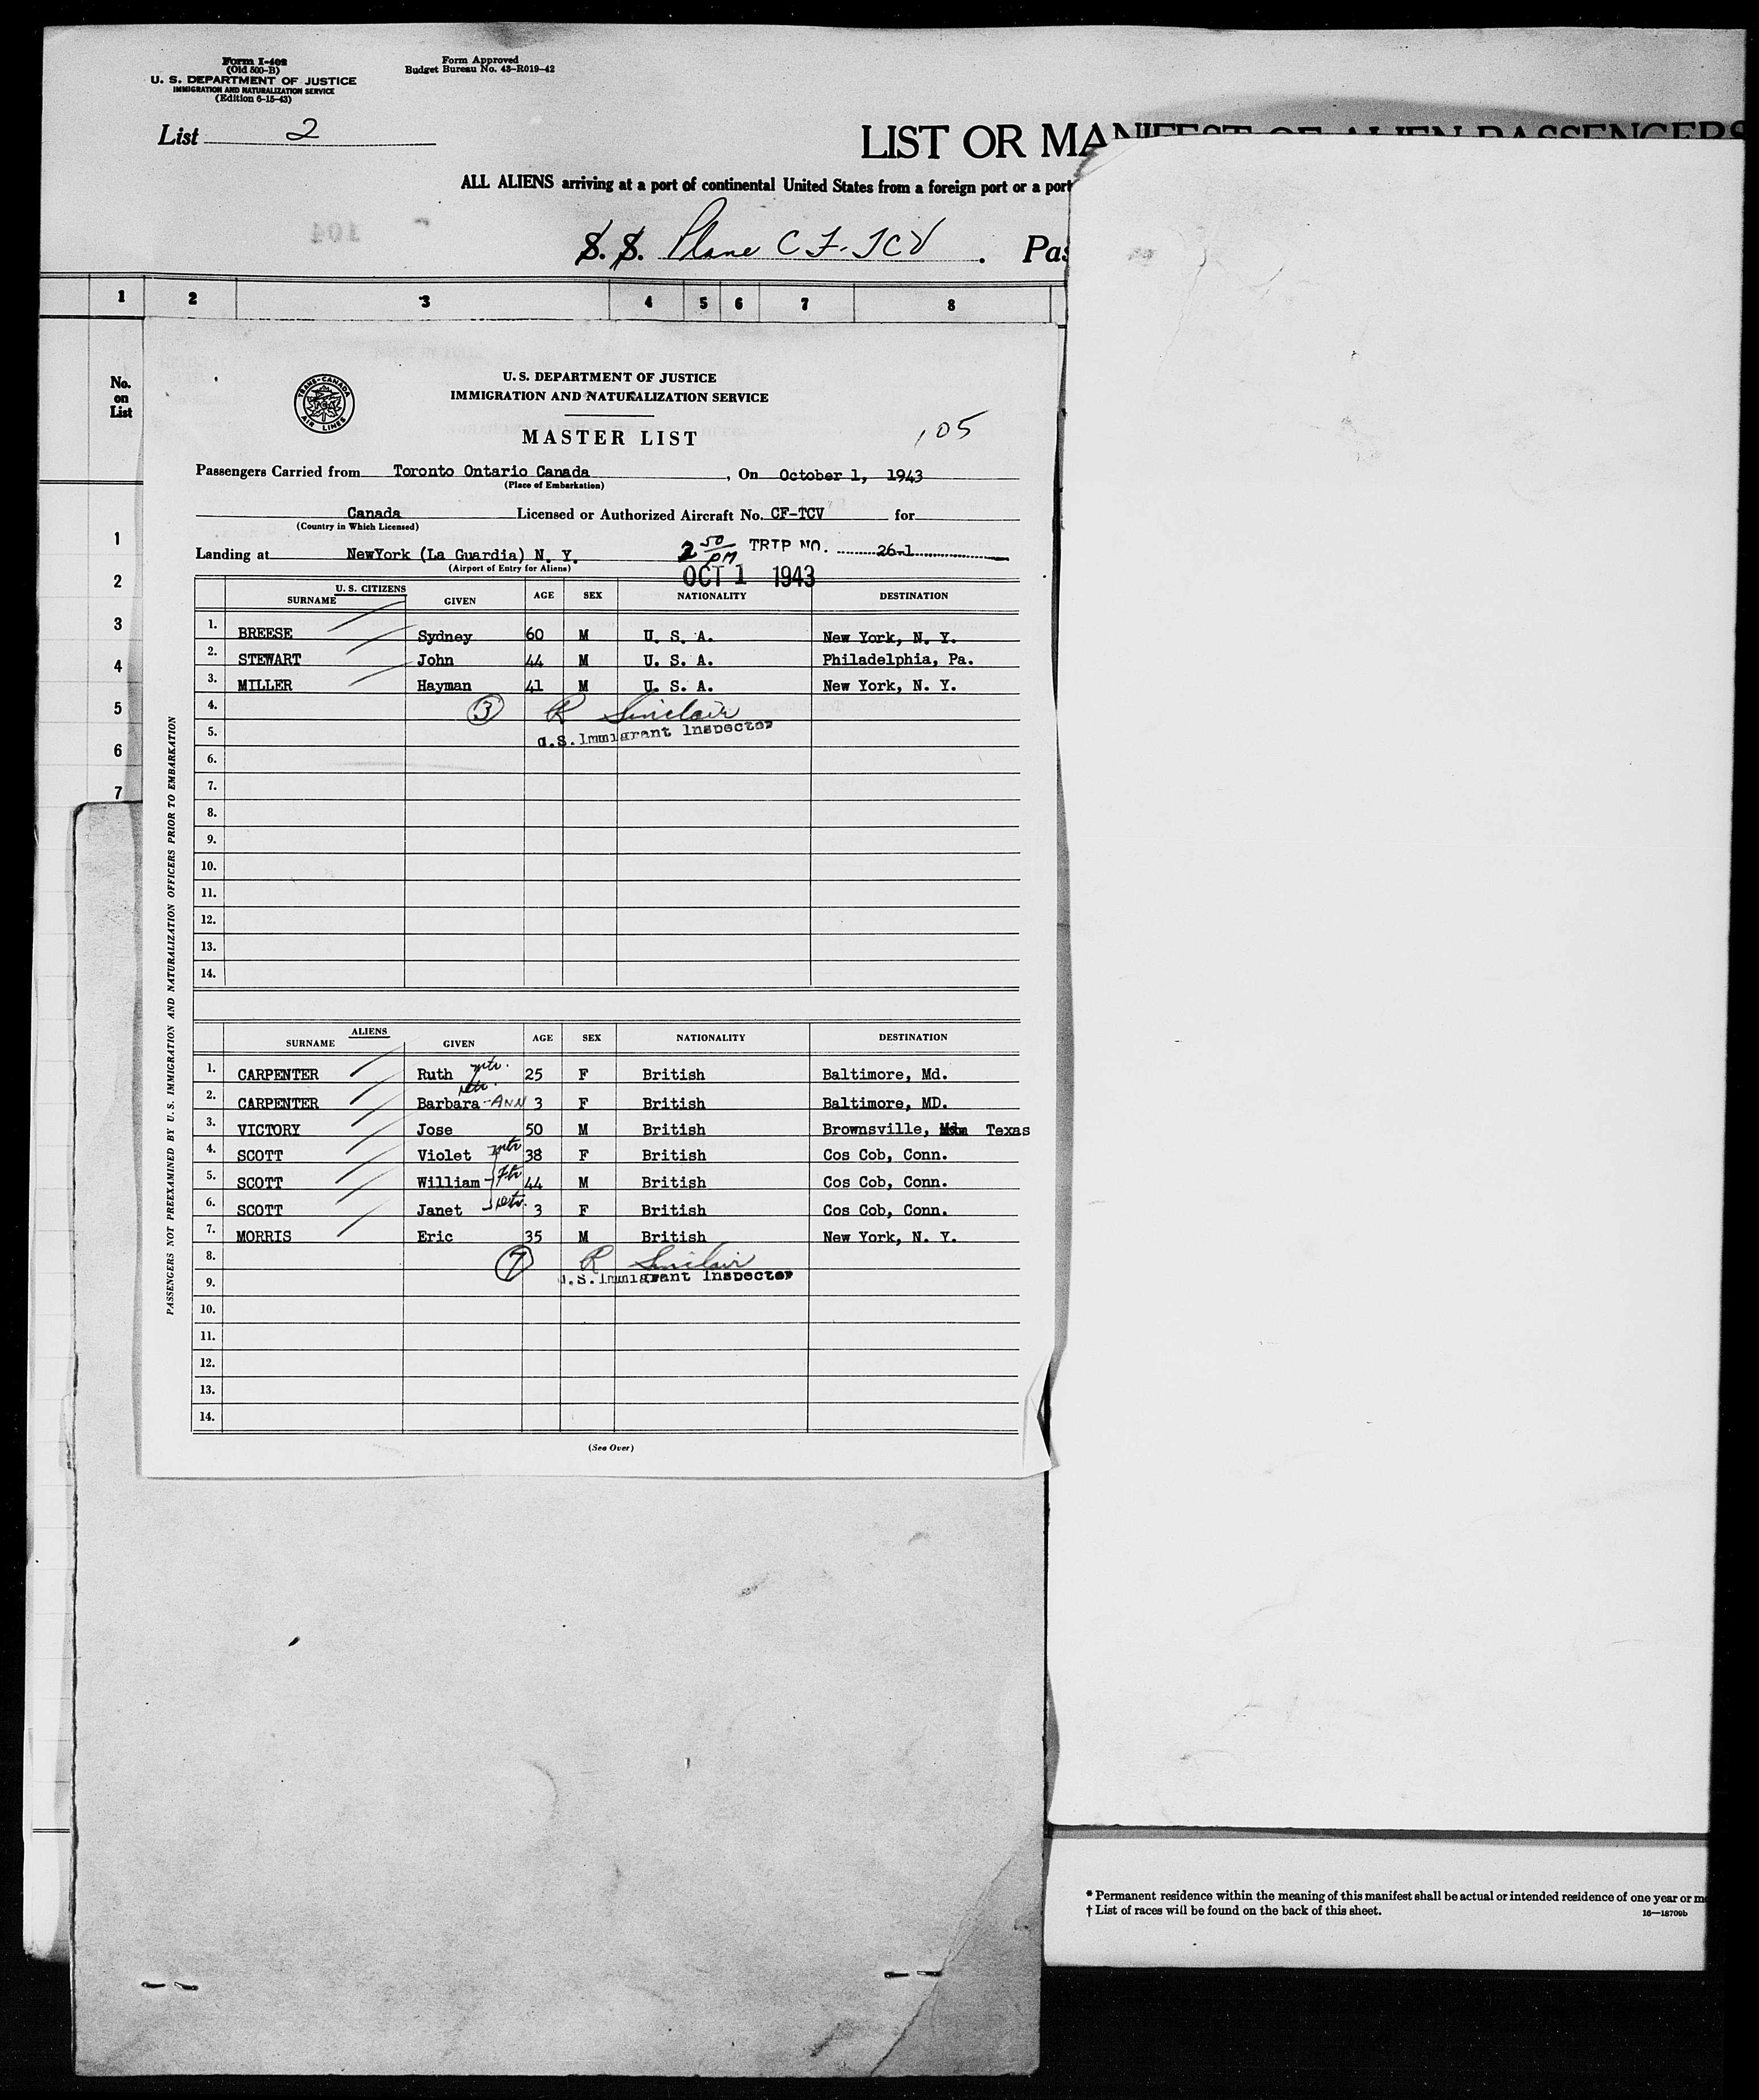 Form I-402
(Old 500-B)
U. S. DEPARTMENT OF JUSTICE
IMMIGRATION AND NATURALIZATION SERVICE
(Edition 6-15-43)
Form Approved
Budget Bureau No. 43-R019-42
List 2
LIST OR MANIFEST OF ALIEN PASSENGERS
ALL ALIENS arriving at a port of continental United States from a foreign port or a port
104
S. S. Plane CF-TCV . Pas
1 2 3 4 5 6 7 8
No. on List
1
2
3
4
5
6
7
TRANS-CANADA AIR LINES
U. S. DEPARTMENT OF JUSTICE
IMMIGRATION AND NATURALIZATION SERVICE
MASTER LIST
105
Passengers Carried from Toronto Ontario Canada , On October 1, 1943
(Place of Embarkation)
Canada Licensed or Authorized Aircraft No. CF-TCV for
(Country in Which Licensed)
Landing at NewYork (La Guardia) N. Y. 2 50 PM TRIP NO. 26-1
(Airport of Entry for Aliens)
OCT 1 1943
U. S. CITIZENS
SURNAME GIVEN AGE SEX NATIONALITY DESTINATION
1. BREESE Sydney 60 M U. S. A. New York, N. Y.
2. STEWART John 44 M U. S. A. Philadelphia, Pa.
3. MILLER Hayman 41 M U. S. A. New York, N. Y.
4. 3 R Sinclair
5. U.S. Immigrant Inspector
6.
7.
8.
9.
10.
11.
12.
13.
14.
ALIENS
SURNAME GIVEN AGE SEX NATIONALITY DESTINATION
1. CARPENTER Ruth mtr. 25 F British Baltimore, Md.
2. CARPENTER Barbara-ANN 3 F British Baltimore, MD.
3. VICTORY Jose 50 M British Brownsville, Texas
4. SCOTT Violet mtr 38 F British Cos Cob, Conn.
5. SCOTT William Ftr 44 M British Cos Cob, Conn.
6. SCOTT Janet 3 F British Cos Cob, Conn.
7. MORRIS Eric 35 M British New York, N. Y.
8. 7 R Sinclair
9. U.S. Immigrant Inspector
10.
11.
12.
13.
14.
(See Over)
PASSENGERS NOT PREEXAMINED BY U. S. IMMIGRATION AND NATURALIZATION OFFICERS PRIOR TO EMBARKATION
* Permanent residence within the meaning of this manifest shall be actual or intended residence of one year or mo
† List of races will be found on the back of this sheet.
16—18709b